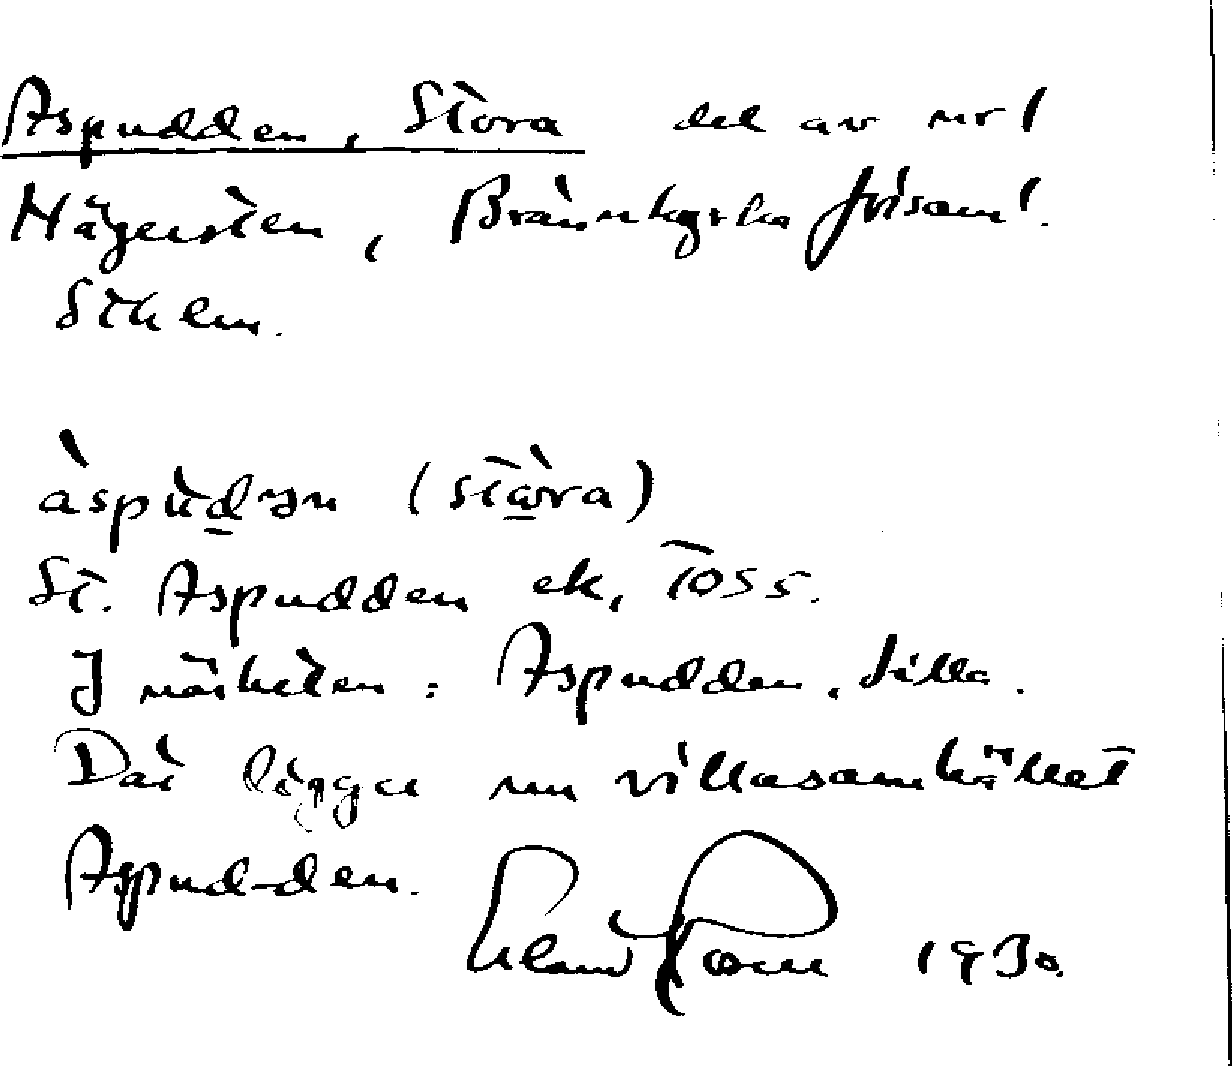 Aspudden, Stora del av nr 1
Hägersten, Brännkyrka församl.
Sthlm.
àspùdən (stòra)
St. Aspudden ek,
I närheten: Aspudden, Lilla.
Där ligger nu villasamhället
Aspudden.
1930.